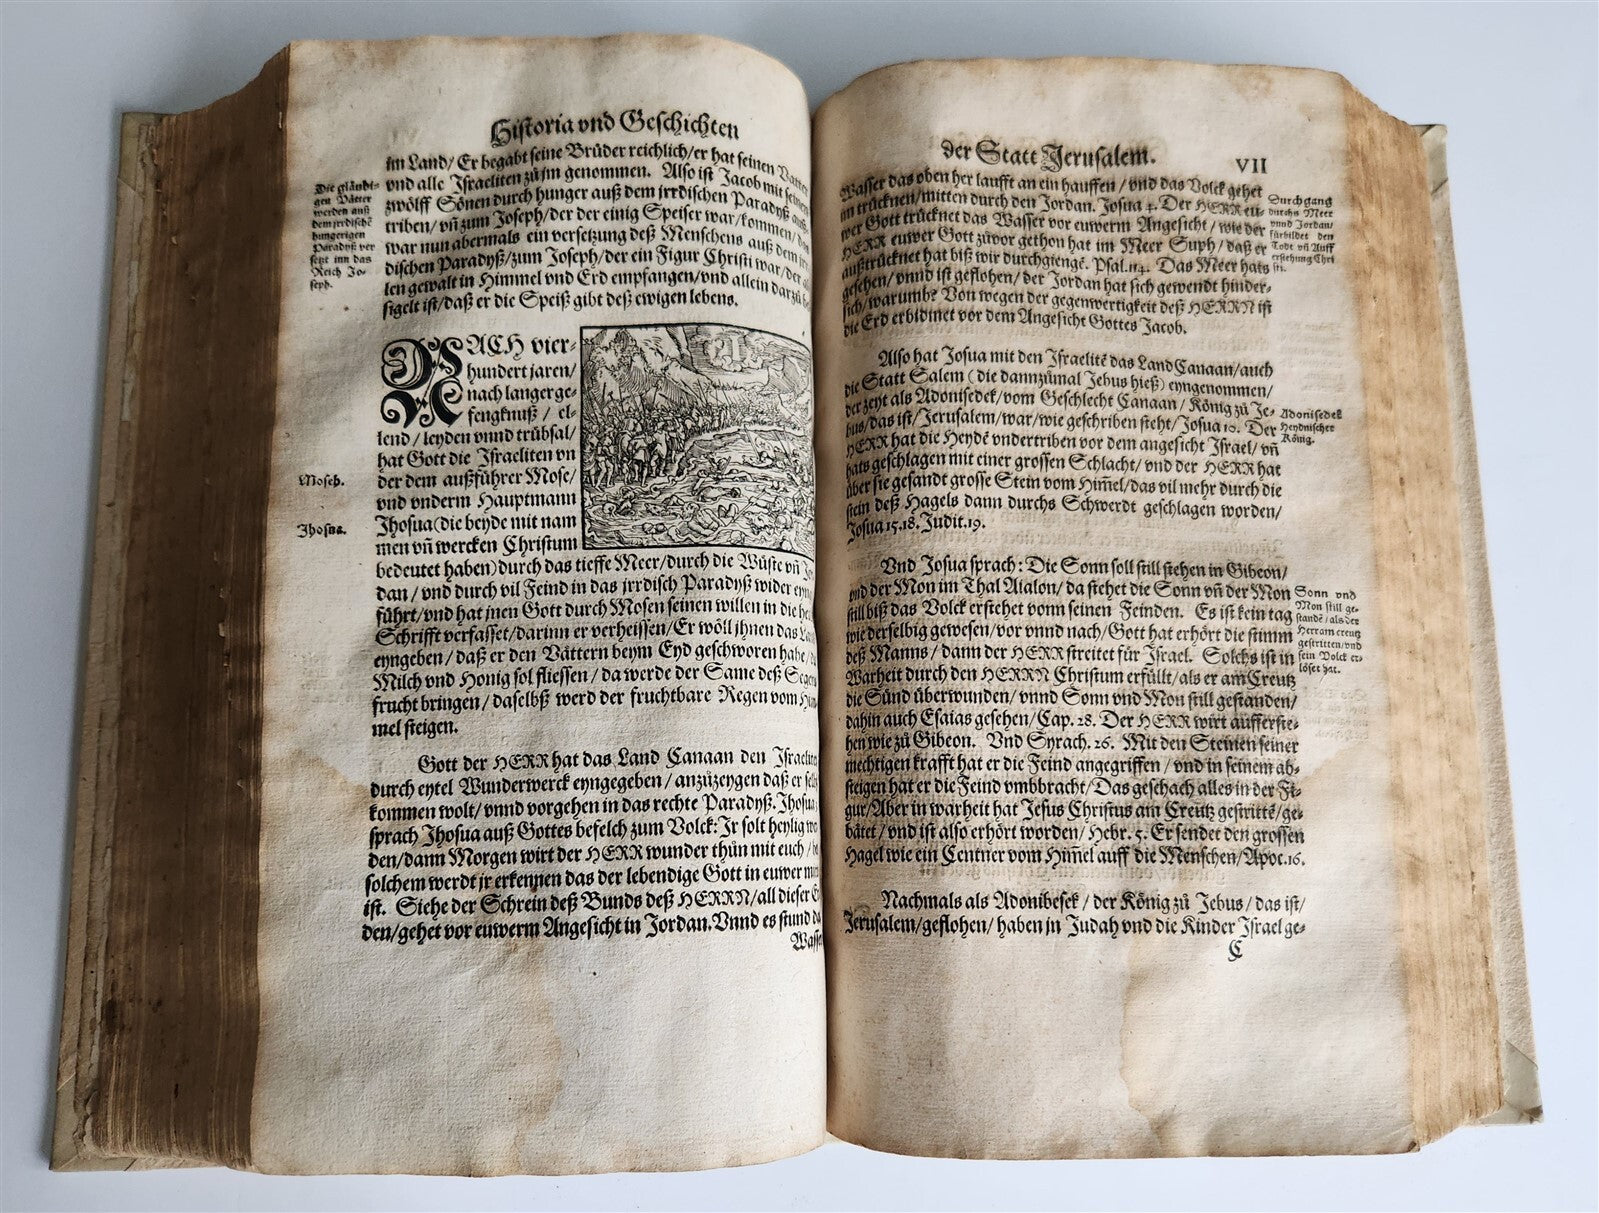 Historia vnd Geschichten
im Land/ Er begabt seine Brüder reichlich/er hat seinen
vnd alle Israeliten zů jm genommen. Also ist Jacob mit seinen
zwölff Sönen durch hunger auß dem jrrdischen Paradyß
triben/ vñ zum Joseph/der der einig Speiser war/kommen/
war nun abermals ein versetzung deß Menschens auß dem
dischen Paradyß/zum Joseph/der ein Figur Christi war/der
len gewalt in Himmel vnd Erd empfangen/vnd allein darzů
sigelt ist/daß er die Speiß gibt deß ewigen lebens.
Die gläubi-
gen Vätter
werden auß
dem jrrdischē
hungerigen
Paradyß ver
setzt inn das
Reich Jo-
seph.
NACH vier-
hundert jaren/
nach langer ge-
fengknuß / el-
lend / leyden vnnd trübsal/
hat Gott die Israeliten vn
der dem außführer Mose/
vnd vnderm Hauptmann
Jhosua(die beyde mit nam
men vñ wercken Christum
bedeutet haben) durch das tieffe Meer/durch die Wüste vñ
dan / vnd durch vil Feind in das jrrdisch Paradyß wider
führt/vnd hat jnen Gott durch Mosen seinen willen in die
Schrifft verfasset/darinn er verheissen/Er wöll jhnen das
eyngeben / daß er den Vättern beym Eyd geschworen habe/
Milch vnd Honig sol fliessen / da werde der Same deß
frucht bringen / daselbß werd der fruchtbare Regen vom
mel steigen.
Moseh.
Jhosua.
Gott der HERR hat das Land Canaan den
durch eytel Wunderwerck eyngegeben / anzůzeygen daß er
kommen wolt/ vnnd vorgehen in das rechte Paradyß.
sprach Jhosua auß Gottes befelch zum Volck: Jr solt heylig
den/dann Morgen wirt der HERR wunder thůn mit euch /
solchem werdt jr erkennen das der lebendige Gott in euwer
ist. Siehe der Schrein deß Bunds deß HERRN/all dieser
den/gehet vor euwerm Angesicht in Jordan. Vnnd es stund
der Statt Jerusalem. VII
Wasser das oben her laufft an ein hauffen / vnd das Volck gehet
im trücknen/mitten durch den Jordan. Josua 4. Der HERR eu-
wer Gott trücknet das Wasser vor euwerm Angesicht / wie der
HERR euwer Gott zůvor gethon hat im Meer Suph/ daß er
außtrücknet hat biß wir durchgiengē. Psal.114. Das Meer hats
gesehen/ vnnd ist geflohen/ der Jordan hat sich gewendt hinder-
sich/ warumb? Von wegen der gegenwertigkeit deß HERRN ist
die Erd erbidinet vor dem Angesicht Gottes Jacob.
Durchgang
durchs Meer
vnnd Jordan/
fürbildet den
Todt vñ Auff
erstehung Chri
sti.
Also hat Josua mit den Israelitē das Land Canaan/auch
die Statt Salem (die dannzůmal Jebus hieß) eyngenommen/
der zeyt als Adonisedek/vom Geschlecht Canaan / König zů Je-
bus/das ist/Jerusalem/war/wie geschriben steht/ Josua 10. Der
HERR hat die Heydē vndertriben vor dem angesicht Israel/ vñ
hats geschlagen mit einer grossen Schlacht/ vnd der HERR hat
über sie gesandt grosse Stein vom Him̄el/das vil mehr durch die
stein deß Hagels dann durchs Schwerdt geschlagen worden/
Josua 15.18. Judit.19.
Adonisedek
Heydnischer
König.
Vnd Josua sprach: Die Sonn soll still stehen in Gibeon/
vnd der Mon im Thal Aialon/ da stehet die Sonn vñ der Mon
still biß das Volck erstehet vonn seinen Feinden. Es ist kein tag
wie derselbig gewesen/vor vnnd nach/Gott hat erhört die stimm
deß Manns / dann der HERR streitet für Israel. Solchs ist in
Warheit durch den HERRN Christum erfüllt/als er am Creutz
die Sünd überwunden/ vnnd Sonn vnd Mon still gestanden/
dahin auch Esaias gesehen/Cap. 28. Der HERR wirt aufferste-
hen wie zů Gibeon. Vnd Syrach. 26. Mit den Steinen seiner
mechtigen krafft hat er die Feind angegriffen / vnd in seinem ab-
steigen hat er die Feind vmbbracht/ Das geschach alles in der Fi-
gur/Aber in warheit hat Jesus Christus am Creutz gestrittē/ge-
bätet / vnd ist also erhört worden/ Hebr. 5. Er sendet den grossen
Hagel wie ein Centner vom Him̄el auff die Menschen/Apoc.16.
Sonn vnd
Mon still ge-
standē/ als der
Herr am creutz
gestritten/vnd
sein Volck er-
löset hat.
Nachmals als Adonibesek / der König zů Jebus / das ist/
Jerusalem/geflohen/ haben jn Judah vnd die Kinder Israel ge-
C